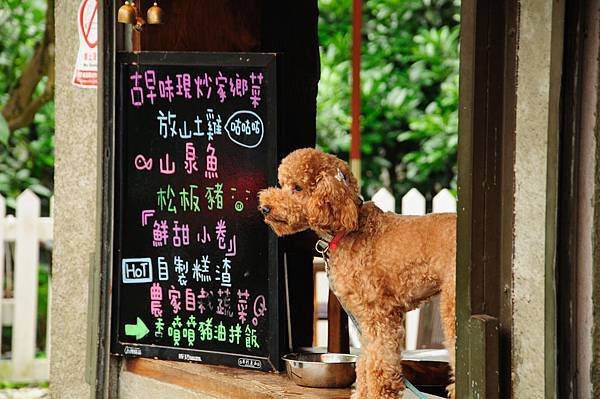 古早味現炒家鄉菜
放山土雞 咕咕咕
山泉魚
松板豬
『鮮甜小卷』
HOT 自製糕渣
農家自栽蔬菜
香噴噴豬油拌飯